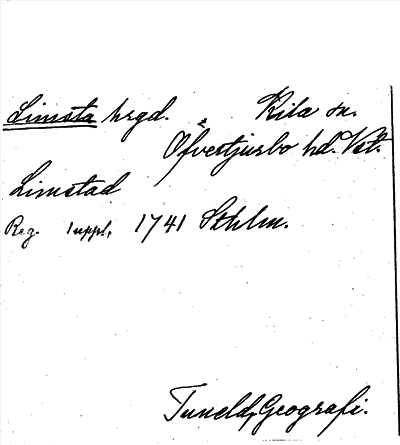 Limsta hrgd. Kila sn.
Öfvertjurbo hd. Vstm.
Limstad
Reg. suppl, 1741 Sthlm.
Tuneld, Geografi.